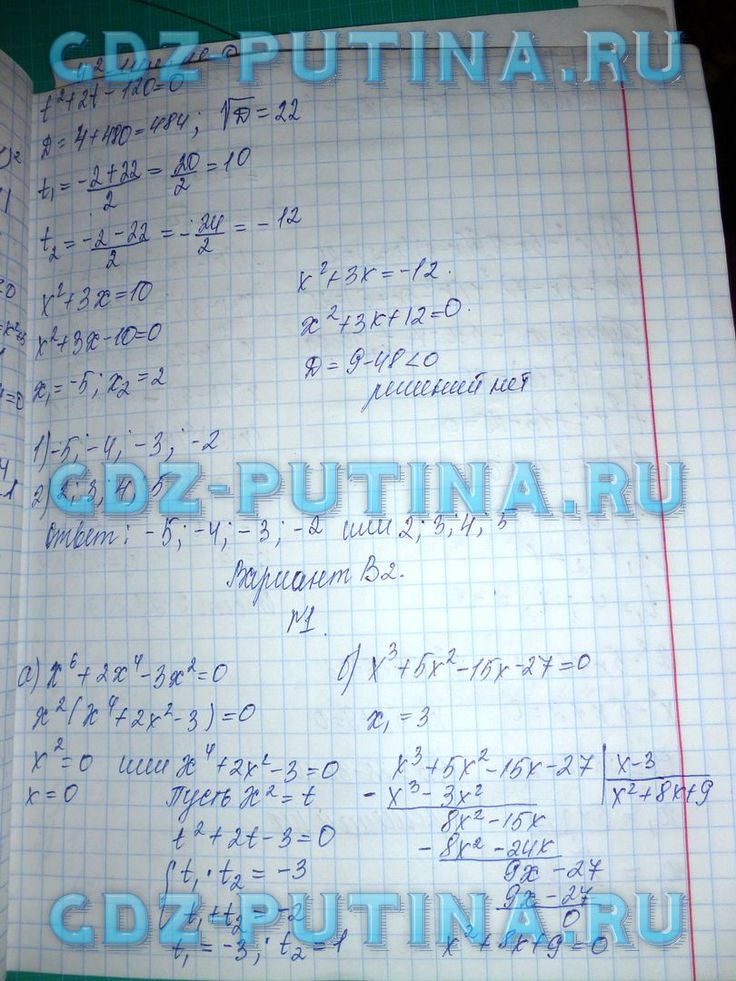 GDZ-PUTINA.RU
t²+2t-120=0
D=4+480=484; √D=22
t₁=(-2+22)/2=20/2=10
t₂=(-2-22)/2=-24/2=-12
x²+3x=10
x²+3x-10=0
x₁=-5; x₂=2
x²+3x=-12.
x²+3x+12=0.
D=9-48<0
решений нет
1) -5; -4; -3; -2
GDZ-PUTINA.RU
2) 2; 3; 4; 5
Ответ: -5; -4; -3; -2 или 2; 3; 4; 5
Вариант В2.
№1.
а) x⁶+2x⁴-3x²=0
x²(x⁴+2x²-3)=0
x²=0 или x⁴+2x²-3=0
x=0
Пусть x²=t
t²+2t-3=0
t₁·t₂=-3
t₁+t₂=-2
t₁=-3; t₂=1
б) x³+5x²-15x-27=0
x₁=3
x³+5x²-15x-27 | x-3
- x³-3x² | x²+8x+9
8x²-15x
- 8x²-24x
9x-27
9x-27
0
x²+8x+9=0
GDZ-PUTINA.RU